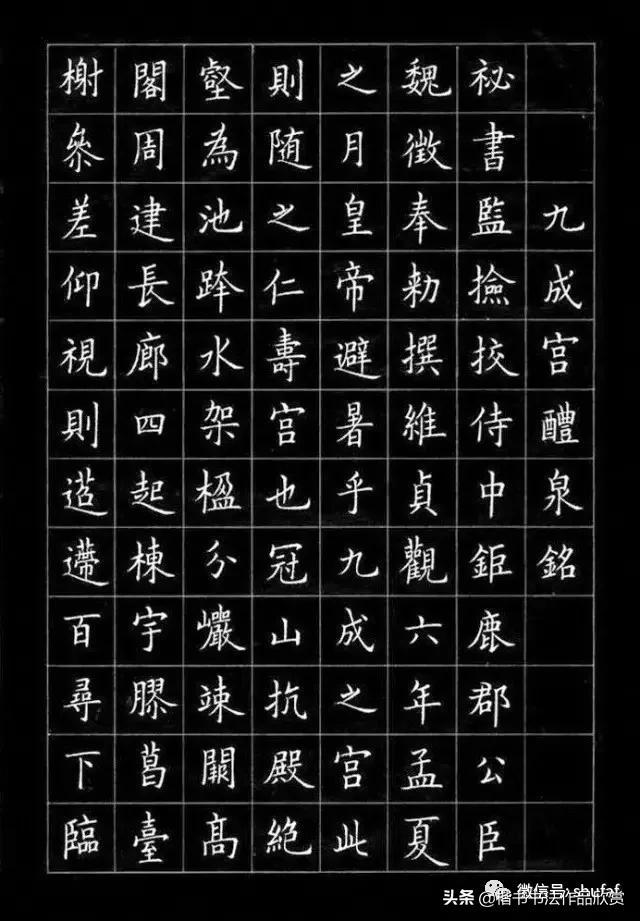 九成宫醴泉銘
祕書監撿挍侍中鉅鹿郡公臣
魏徵奉勑撰維貞觀六年孟夏
之月皇帝避暑乎九成之宫此
則随之仁壽宫也冠山抗殿絶
壑為池跨水架楹分巖竦闕高
閣周建長廊四起棟宇膠葛臺
榭叅差仰視則迢遰百尋下臨
微信号: shufaf
头条 @楷书书法作品欣赏